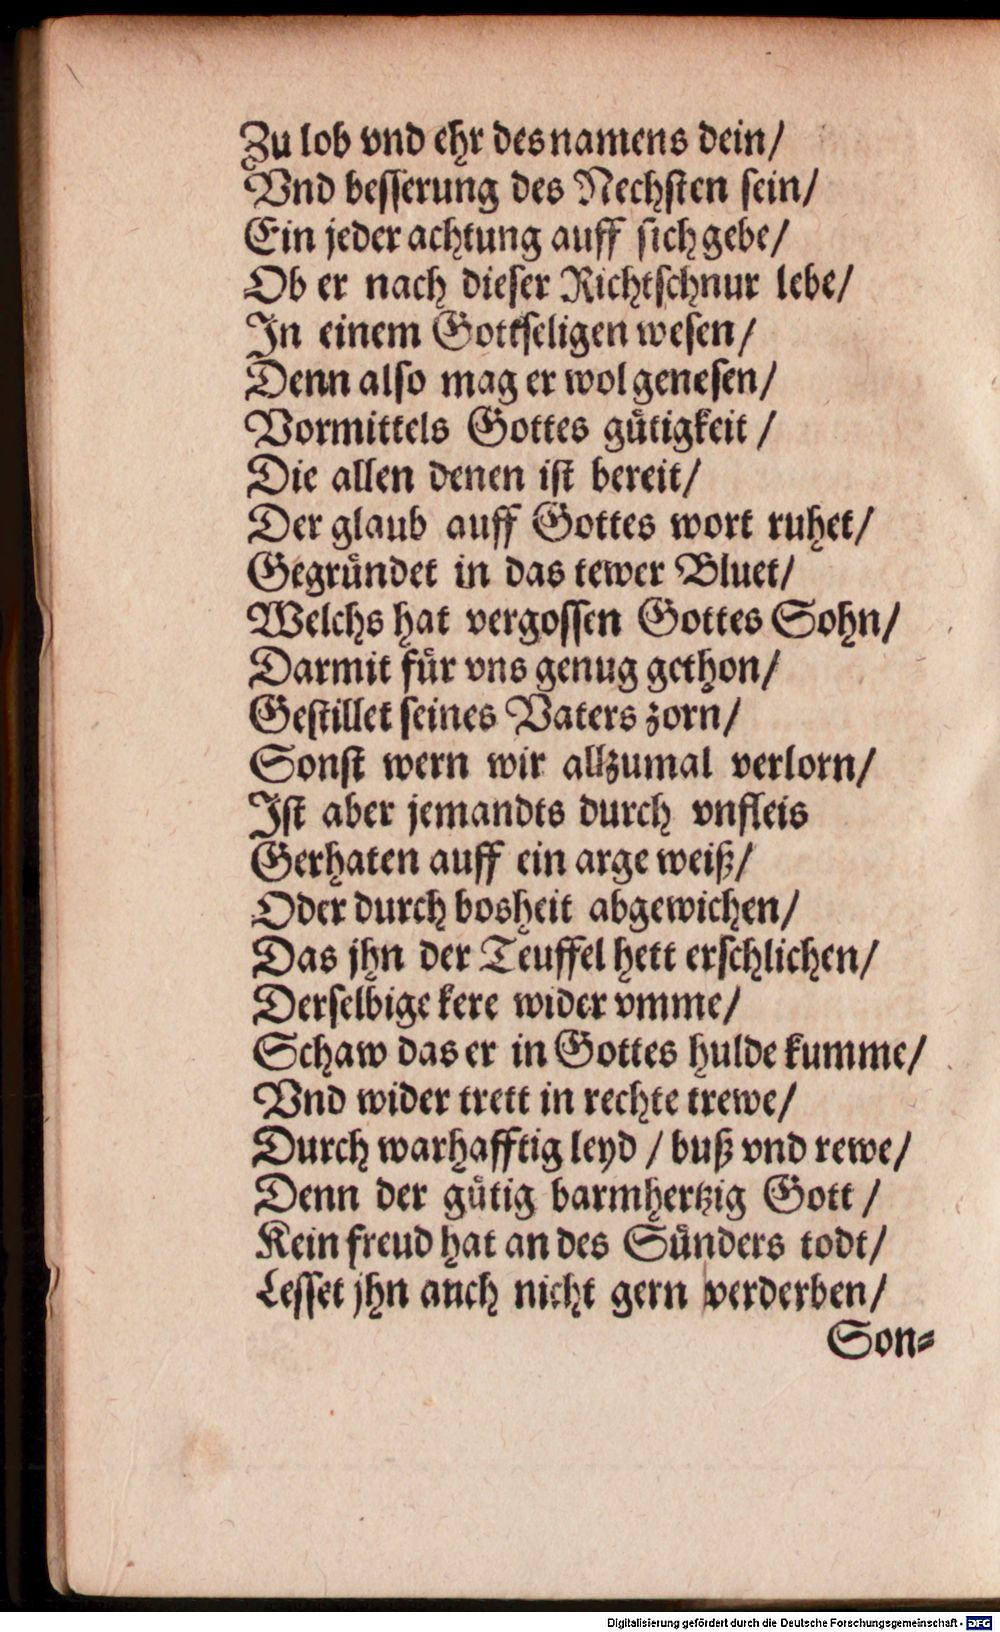 Zu lob vnd ehr des namens dein/
Vnd beſſerung des Nechſten ſein/
Ein jeder achtung auff ſich gebe/
Ob er nach dieſer Richtſchnur lebe/
In einem Gottſeligen weſen/
Denn alſo mag er wol geneſen/
Vormittels Gottes guͤtigkeit /
Die allen denen iſt bereit/
Der glaub auff Gottes wort ruhet/
Gegruͤndet in das tewer Bluet/
Welchs hat vergoſſen Gottes Sohn/
Darmit fuͤr vns genug gethon/
Geſtillet ſeines Vaters zorn/
Sonſt wern wir allzumal verlorn/
Iſt aber jemandts durch vnfleis
Gerhaten auff ein arge weiß/
Oder durch bosheit abgewichen/
Das jhn der Teuffel hett erſchlichen/
Derſelbige kere wider vmme/
Schaw das er in Gottes hulde kumme/
Vnd wider trett in rechte trewe/
Durch warhafftig leyd / buß vnd rewe/
Denn der guͤtig barmhertzig Gott /
Kein freud hat an des Suͤnders todt/
Leſſet jhn auch nicht gern verderben/
Son⸗
Digitalisierung gefördert durch die Deutsche Forschungsgemeinschaft - DFG